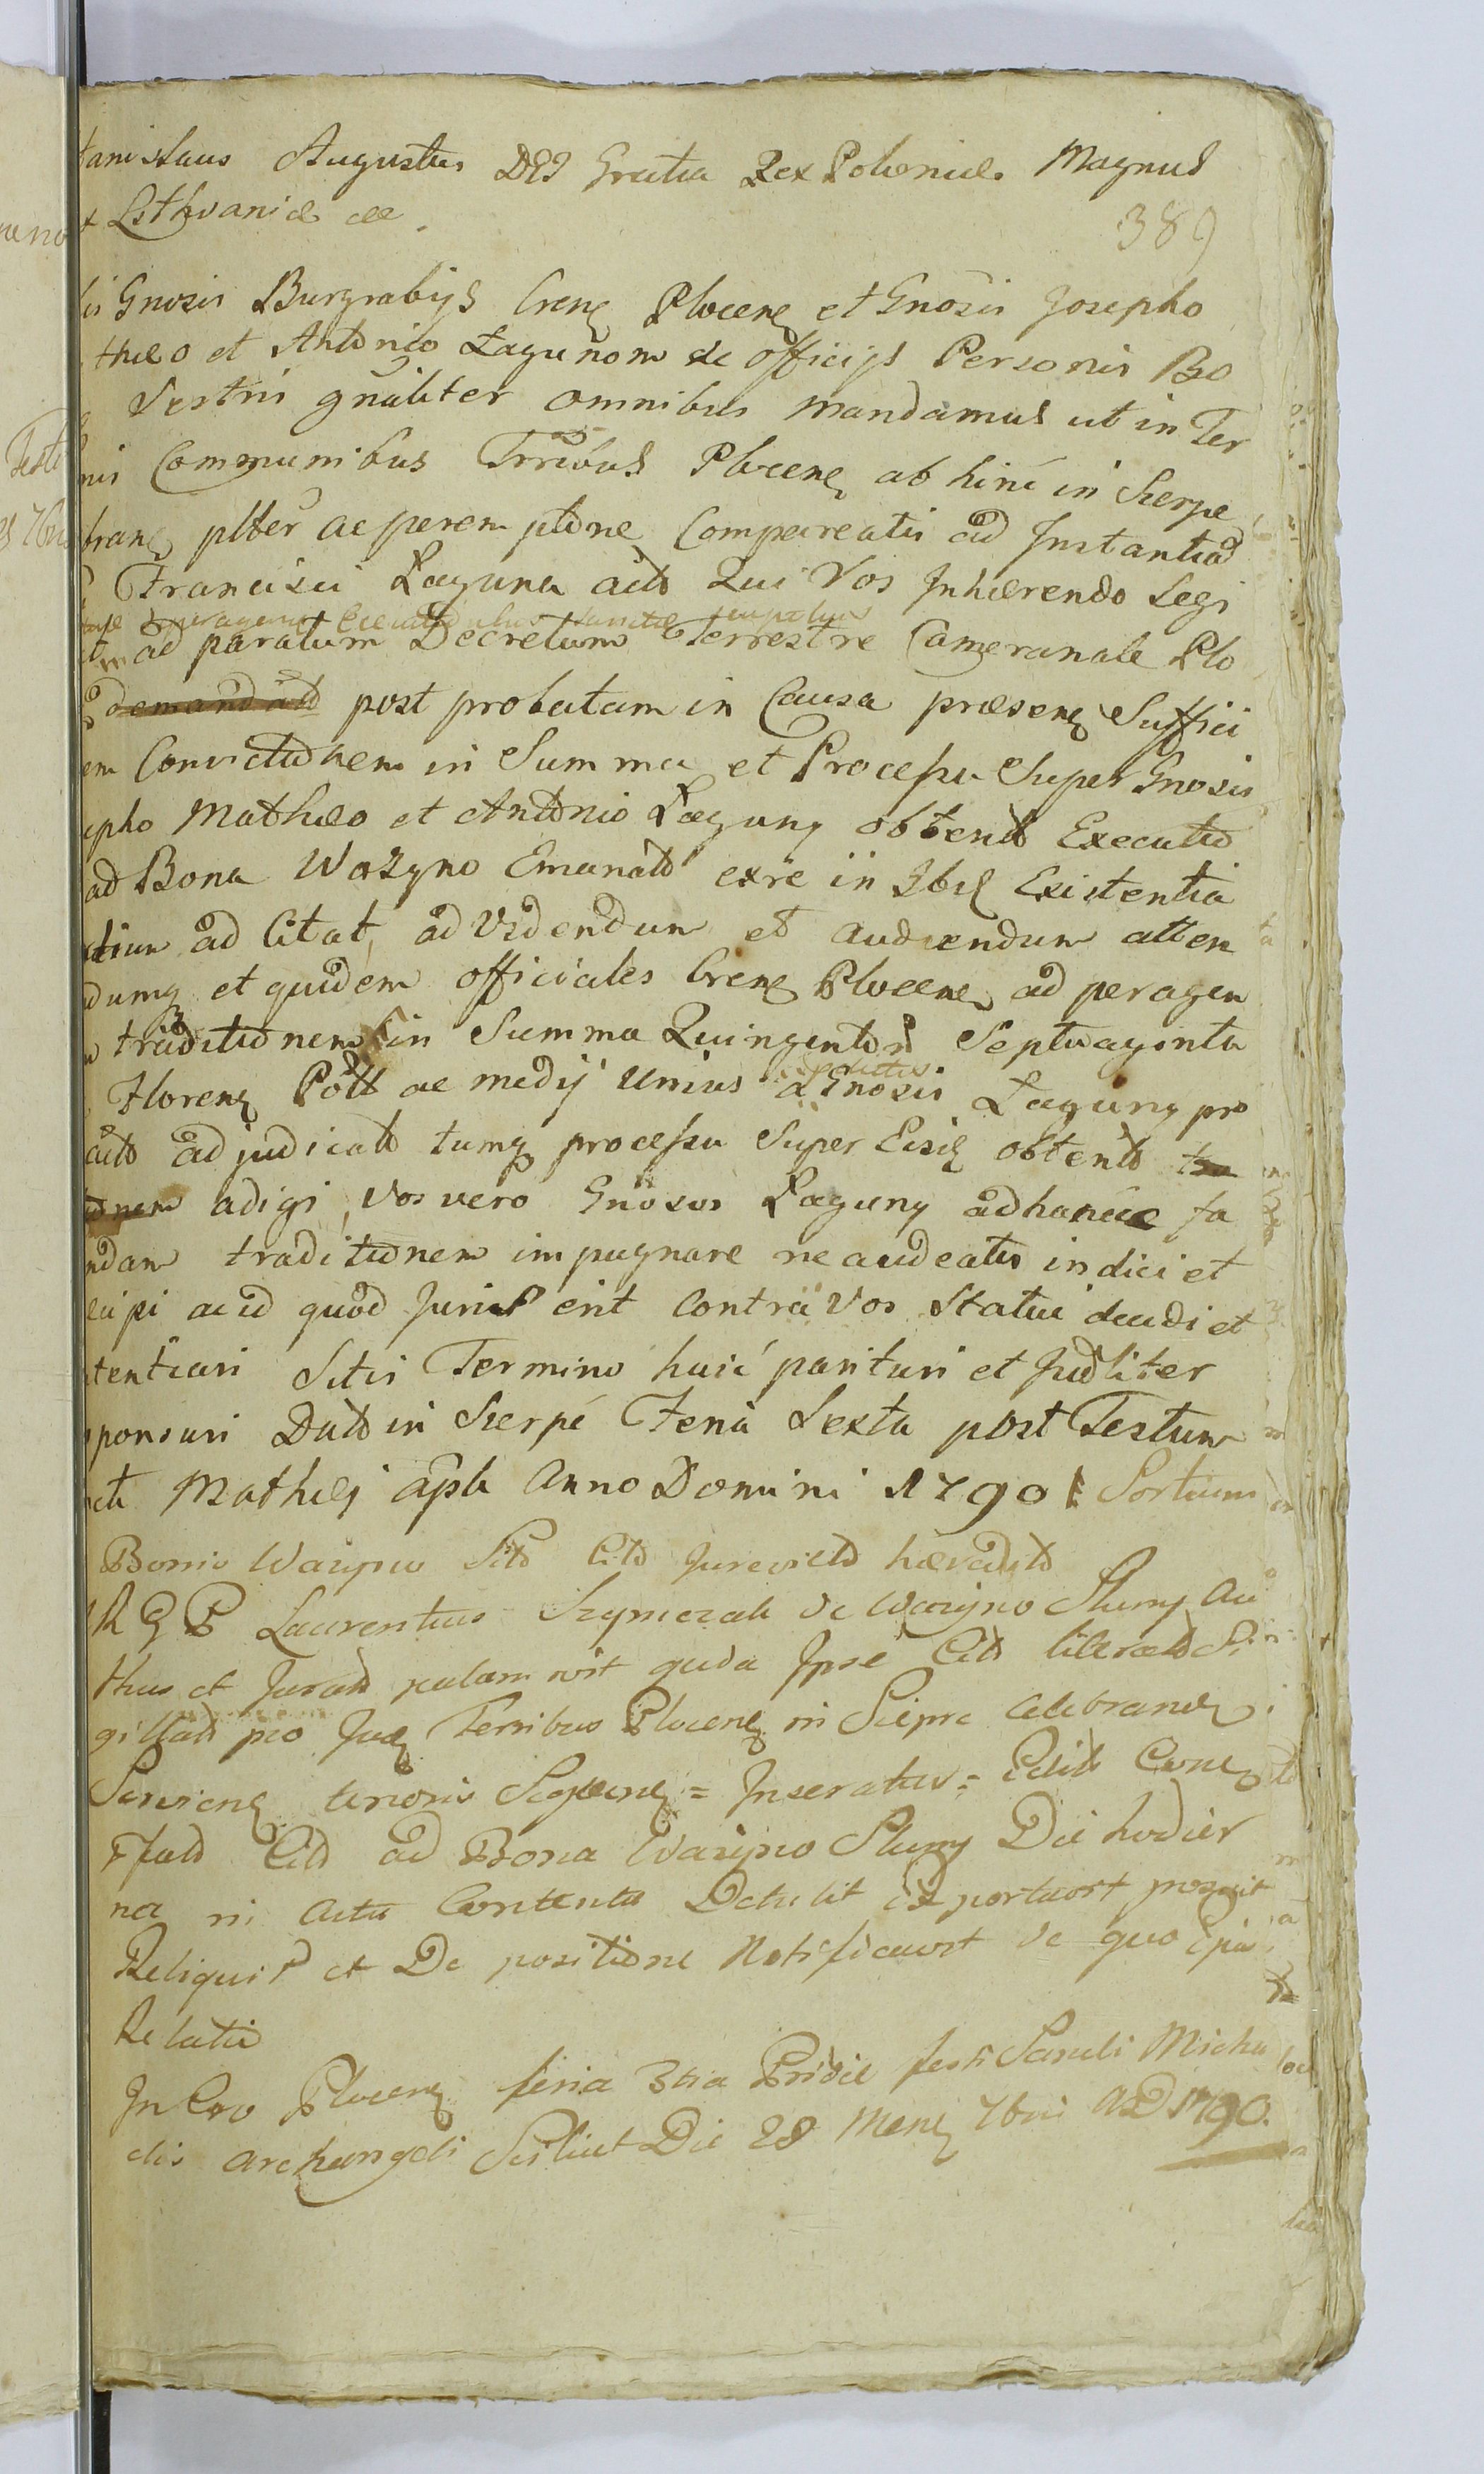 tanislaus Augustus DEI Gratia Rex Poloniæ Magnus
x Lithvaniæ &&
389
is Gnosis Burgrabijs Crens Plocens et Gnosis Josepho
thæo et Antonio Łagunom de officijs Personis Bo
Vestris gnäliter omnibus mandamus ut in Ter
nis Communibus Trribus Plocens ab hinc in Sierpc
brans plter ac peremptone Compareatis ad Instantia
Francisci Łaguna act Qui Vos Inhærendo Legi
ad paratum Decretum Terrestre Cameranale Plo
demandatt post probatam in Causa præsens Suffici
em Convictionem in Summa et Processu Super Gnosis
epho Mathæo et Antonio Łaguny obtent Executio
ad Bona Ważyno Emanatt exre in Ibis Existentia
tium ad Citat, ad Videndum et audiendum atten
dumq et quidem officiales Crens Plocens ad peragen
traditionem in Summa Quingentor Septuaginta
Florens Poll ac medij unius a Gnosis Łaguny pro
actt adjudicatt tumq processu Super Eisd obtent tra
onem adigi, Vos vero Gnosos Łaguny adhancce fa
ndam traditionem impugnare ne audeatis indici et
cipi ac id quod Juris erit contra Vos Statui decidi et
tentiari Sitis Termino huic parituri et Judliter
sponsuri Datt in Sierpc Feria Sexta post Festum
cti Mathej apli Anno Domini 1790 Sortium
Bonis Ważyno Sitt Citt Jurevictt hæreditt
R G P Laurentius Szymczak de Ważyno Sluny Au
thus et Juratt palam rvit quia Ipse Citt literatt Si
gillatt pro Juds Terribus Plocens in Sierpc celebrands
Serviens tenoris Seqens = Inseratur = Edit Cone
fatt Citt ad Bona Ważyno Sluny Die hodier
na in Actu Contenta Detulit exportavit posuit
Reliquit et De positione Notificavit de quo Ejus
Relatio
In Cro Plocens feria 3tia Pridie festi Sancti Micha
elis Archangeli Scilicet Die 28 Mens 7bris AD 1790.